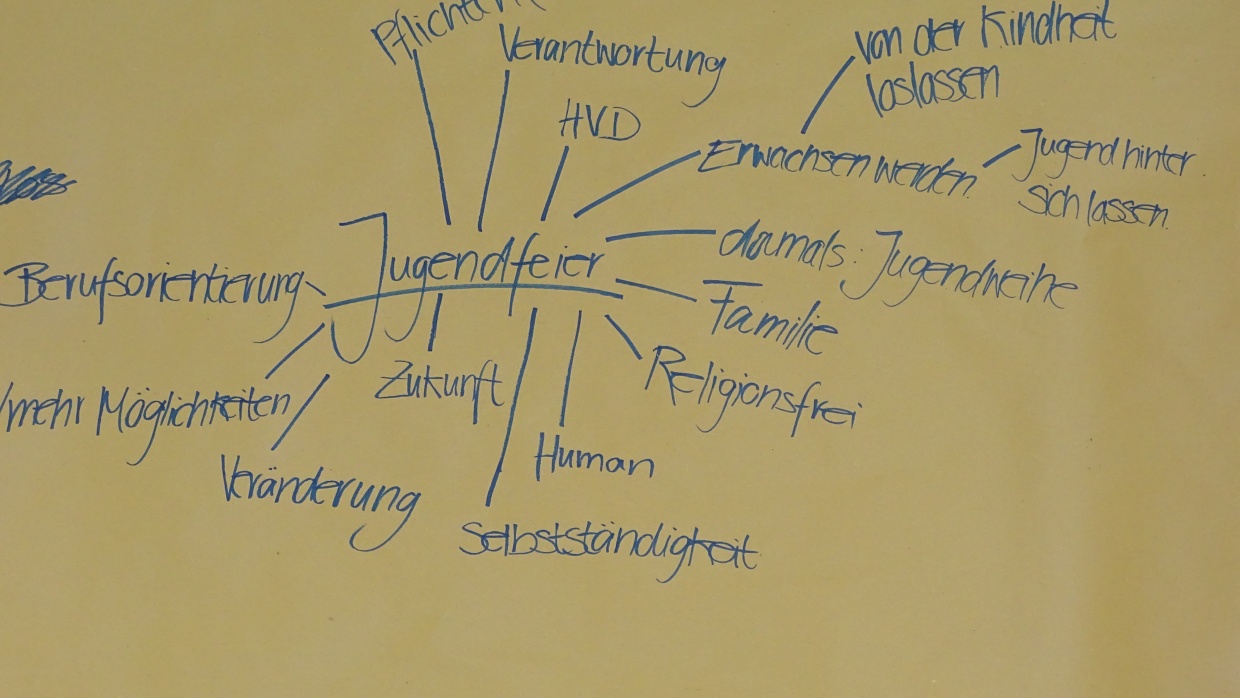 Verantwortung
von der Kindheit
loslassen
HVD
Erwachsen werden
Jugend hinter
sich lassen
Jugendfeier
damals: Jugendweihe
Berufsorientierung
Familie
Zukunft
Religionsfrei
mehr Möglichkeiten
Human
Veränderung
Selbstständigkeit